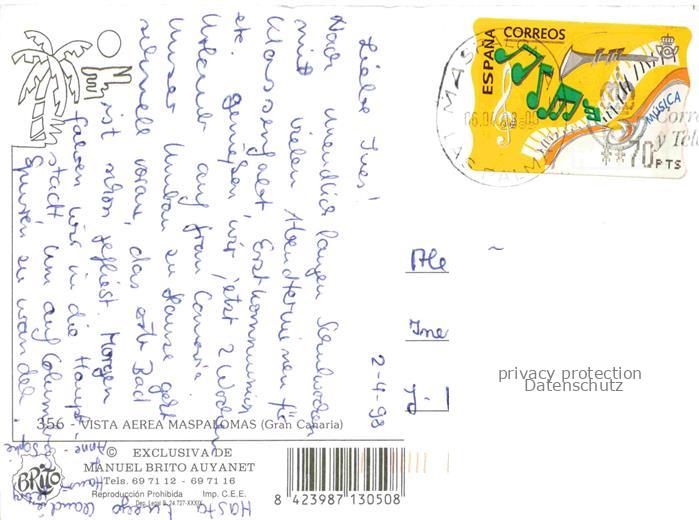 Liebe Ines!
Nach unendlich langen Schulwochen
mit vielen Abendterminen für
Klassenfahrt, Erstkommunion
etc. genießen wir jetzt 2 Wochen
Urlaub auf Gran Canaria.
Unser Umbau zu Hause geht
schnell voran, das erste Bad
ist schon gefliest. Morgen
fahren wir in die Haupt-
stadt um auf Columbus
Spuren zu wandeln.
Hasta luego
Anne-Sophie
2-4-98
ESPAÑA
CORREOS
MÚSICA
70 PTS
MASPALOMAS
LAS PALMAS
Corre
y Tele
Ale
Ine
privacy protection
Datenschutz
356 - VISTA AEREA MASPALOMAS (Gran Canaria)
© EXCLUSIVA DE
MANUEL BRITO AUYANET
Tels. 69 71 12 - 69 71 16
Reproducción Prohibida Imp. C.E.E.
Dep. Legal B. 24.727-XXXIX
BRITO
8 423987 130508